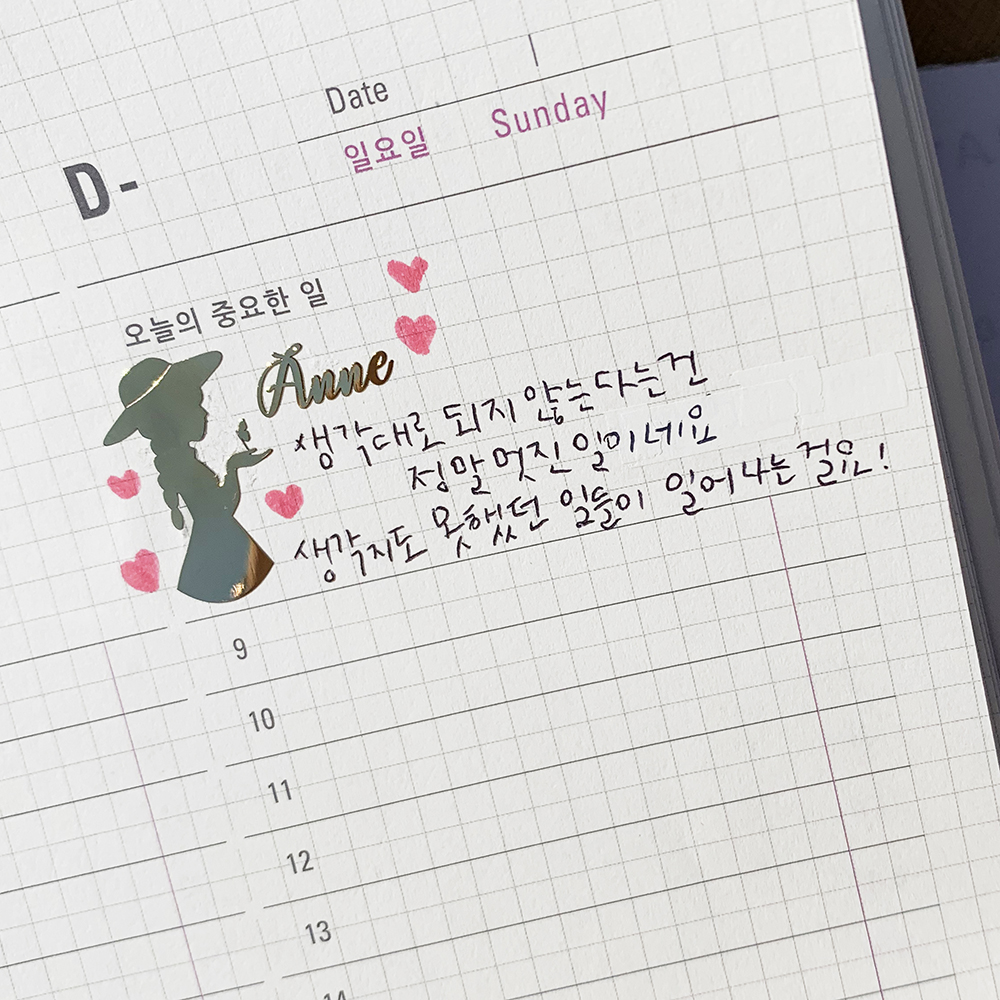 Date
일요일 Sunday
D-
오늘의 중요한 일
Anne
생각대로 되지 않는다는건
정말 멋진 일이네요
생각지도 못했던 일들이 일어나는걸요!
9
10
11
12
13
14